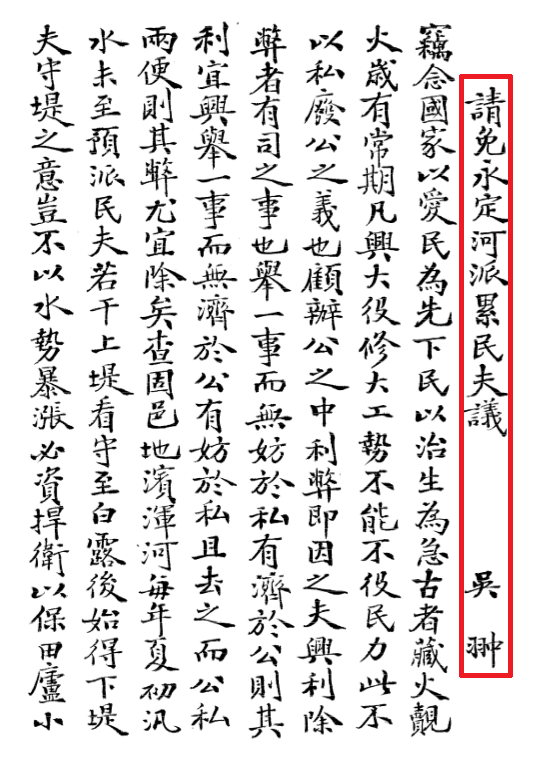 請免永定河派累民夫議 吳翀
竊念國家以愛民為先下民以治生為急古者藏火覿
火歲有常期凡興大役修大工勢不能不役民力此不
以私廢公之義也顧辦公之中利弊即因之夫興利除
弊者有司之事也舉一事而無妨於私有濟於公則其
利宜興舉一事而無濟於公有妨於私且去之而公私
兩便則其弊尤宜除矣查固邑地濱渾河每年夏初汛
水未至預派民夫若干上堤看守至白露後始得下堤
夫守堤之意豈不以水勢暴漲必資捍衛以保田廬小